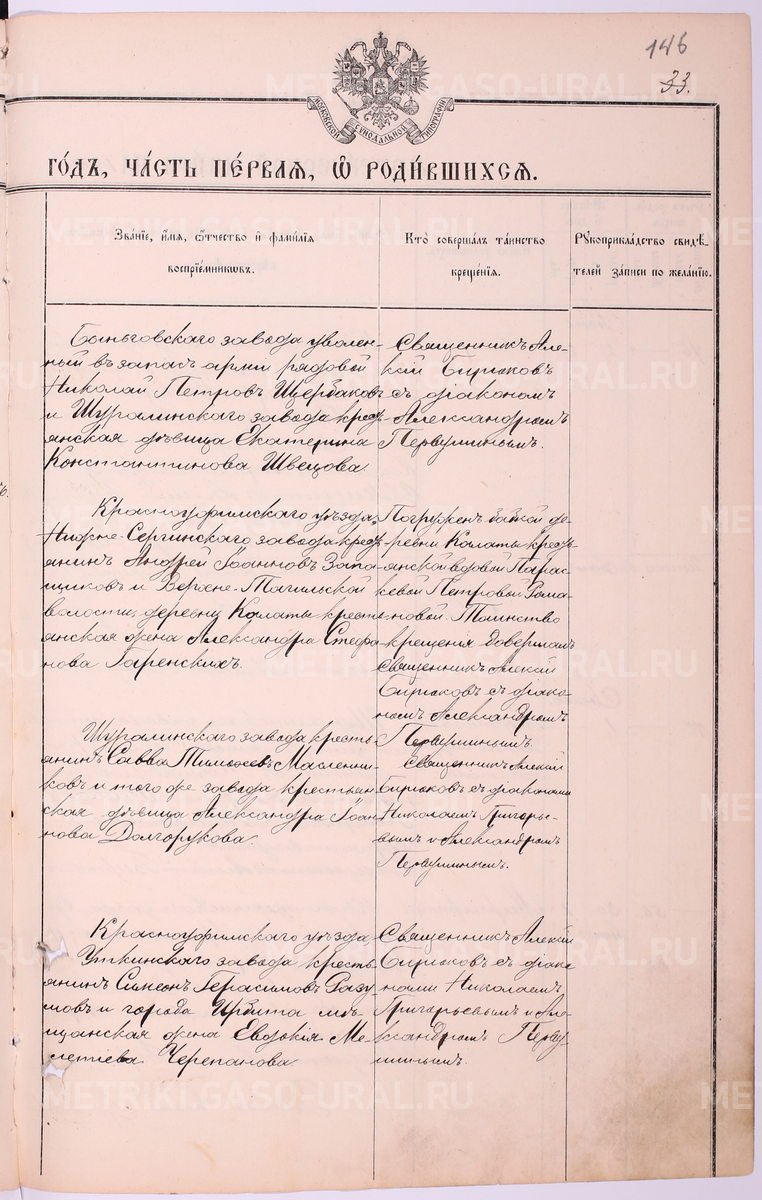 146
33.
МОСКОВСКОЙ СѴНОДАЛЬНОЙ ТИПОГРАФІИ
ГО́ДЪ, ЧА́СТЬ ПЕ́РВАЯ, Ѡ҆ РОДИ́ВШИХСЯ.
Зва́нїе, и҆́мя, ѻ҆́тчество и҆ фами́лїя
воспрїе́мникѡвъ.
Кто̀ соверша́лъ та́инство
креще́нїя.
Рꙋкоприкла́дство свидѣ́-
телей за́писи по жела́нїю.
Быньговскаго завода уволен-
ный въ запасъ арміи рядовой
Николай Петровъ Щербаковъ
и Шуралинскаго завода кресть-
янская дѣвица Екатерина
Константинова Швецова.
Священникъ Але-
ксій Бирюковъ
съ діакономъ
Александромъ
Первушинымъ.
Красноуфимскаго уѣзда,
Нижне-Сергинскаго завода кресть-
янинъ Андрей Іоанновъ Запа-
щиковъ и Верхне-Тагильской
волости, деревни Калаты кресть-
янская жена Александра Стефа-
нова Гаренскихъ.
Погруженъ бабкой де-
ревни Калаты кресть-
янской вдовой Парас-
кевой Петровой Рома-
новой. Таинство
крещенія довершалъ
священникъ Алексій
Бирюковъ съ діако-
номъ Александромъ
Первушинымъ.
Шуралинскаго завода кресть-
янинъ Савва Тимофеевъ Масленни-
ковъ и того же завода крестьян-
ская дѣвица Александра Іоан-
нова Долгорукова.
Священникъ Алексій
Бирюковъ съ діаконами
Николаемъ Григорье-
вымъ и Александромъ
Первушинымъ.
Красноуфимскаго уѣзда
Уткинскаго завода кресть-
янинъ Симеонъ Герасимовъ Разу-
мовъ и города Ирбита мѣ-
щанская жена Евдокія Ме-
летіева Черепанова
Священникъ Алексій
Бирюковъ съ діако-
нами Николаемъ
Григорьевымъ и Але-
ксандромъ Перву-
шинымъ.
METRIKI.GASO-URAL.RU